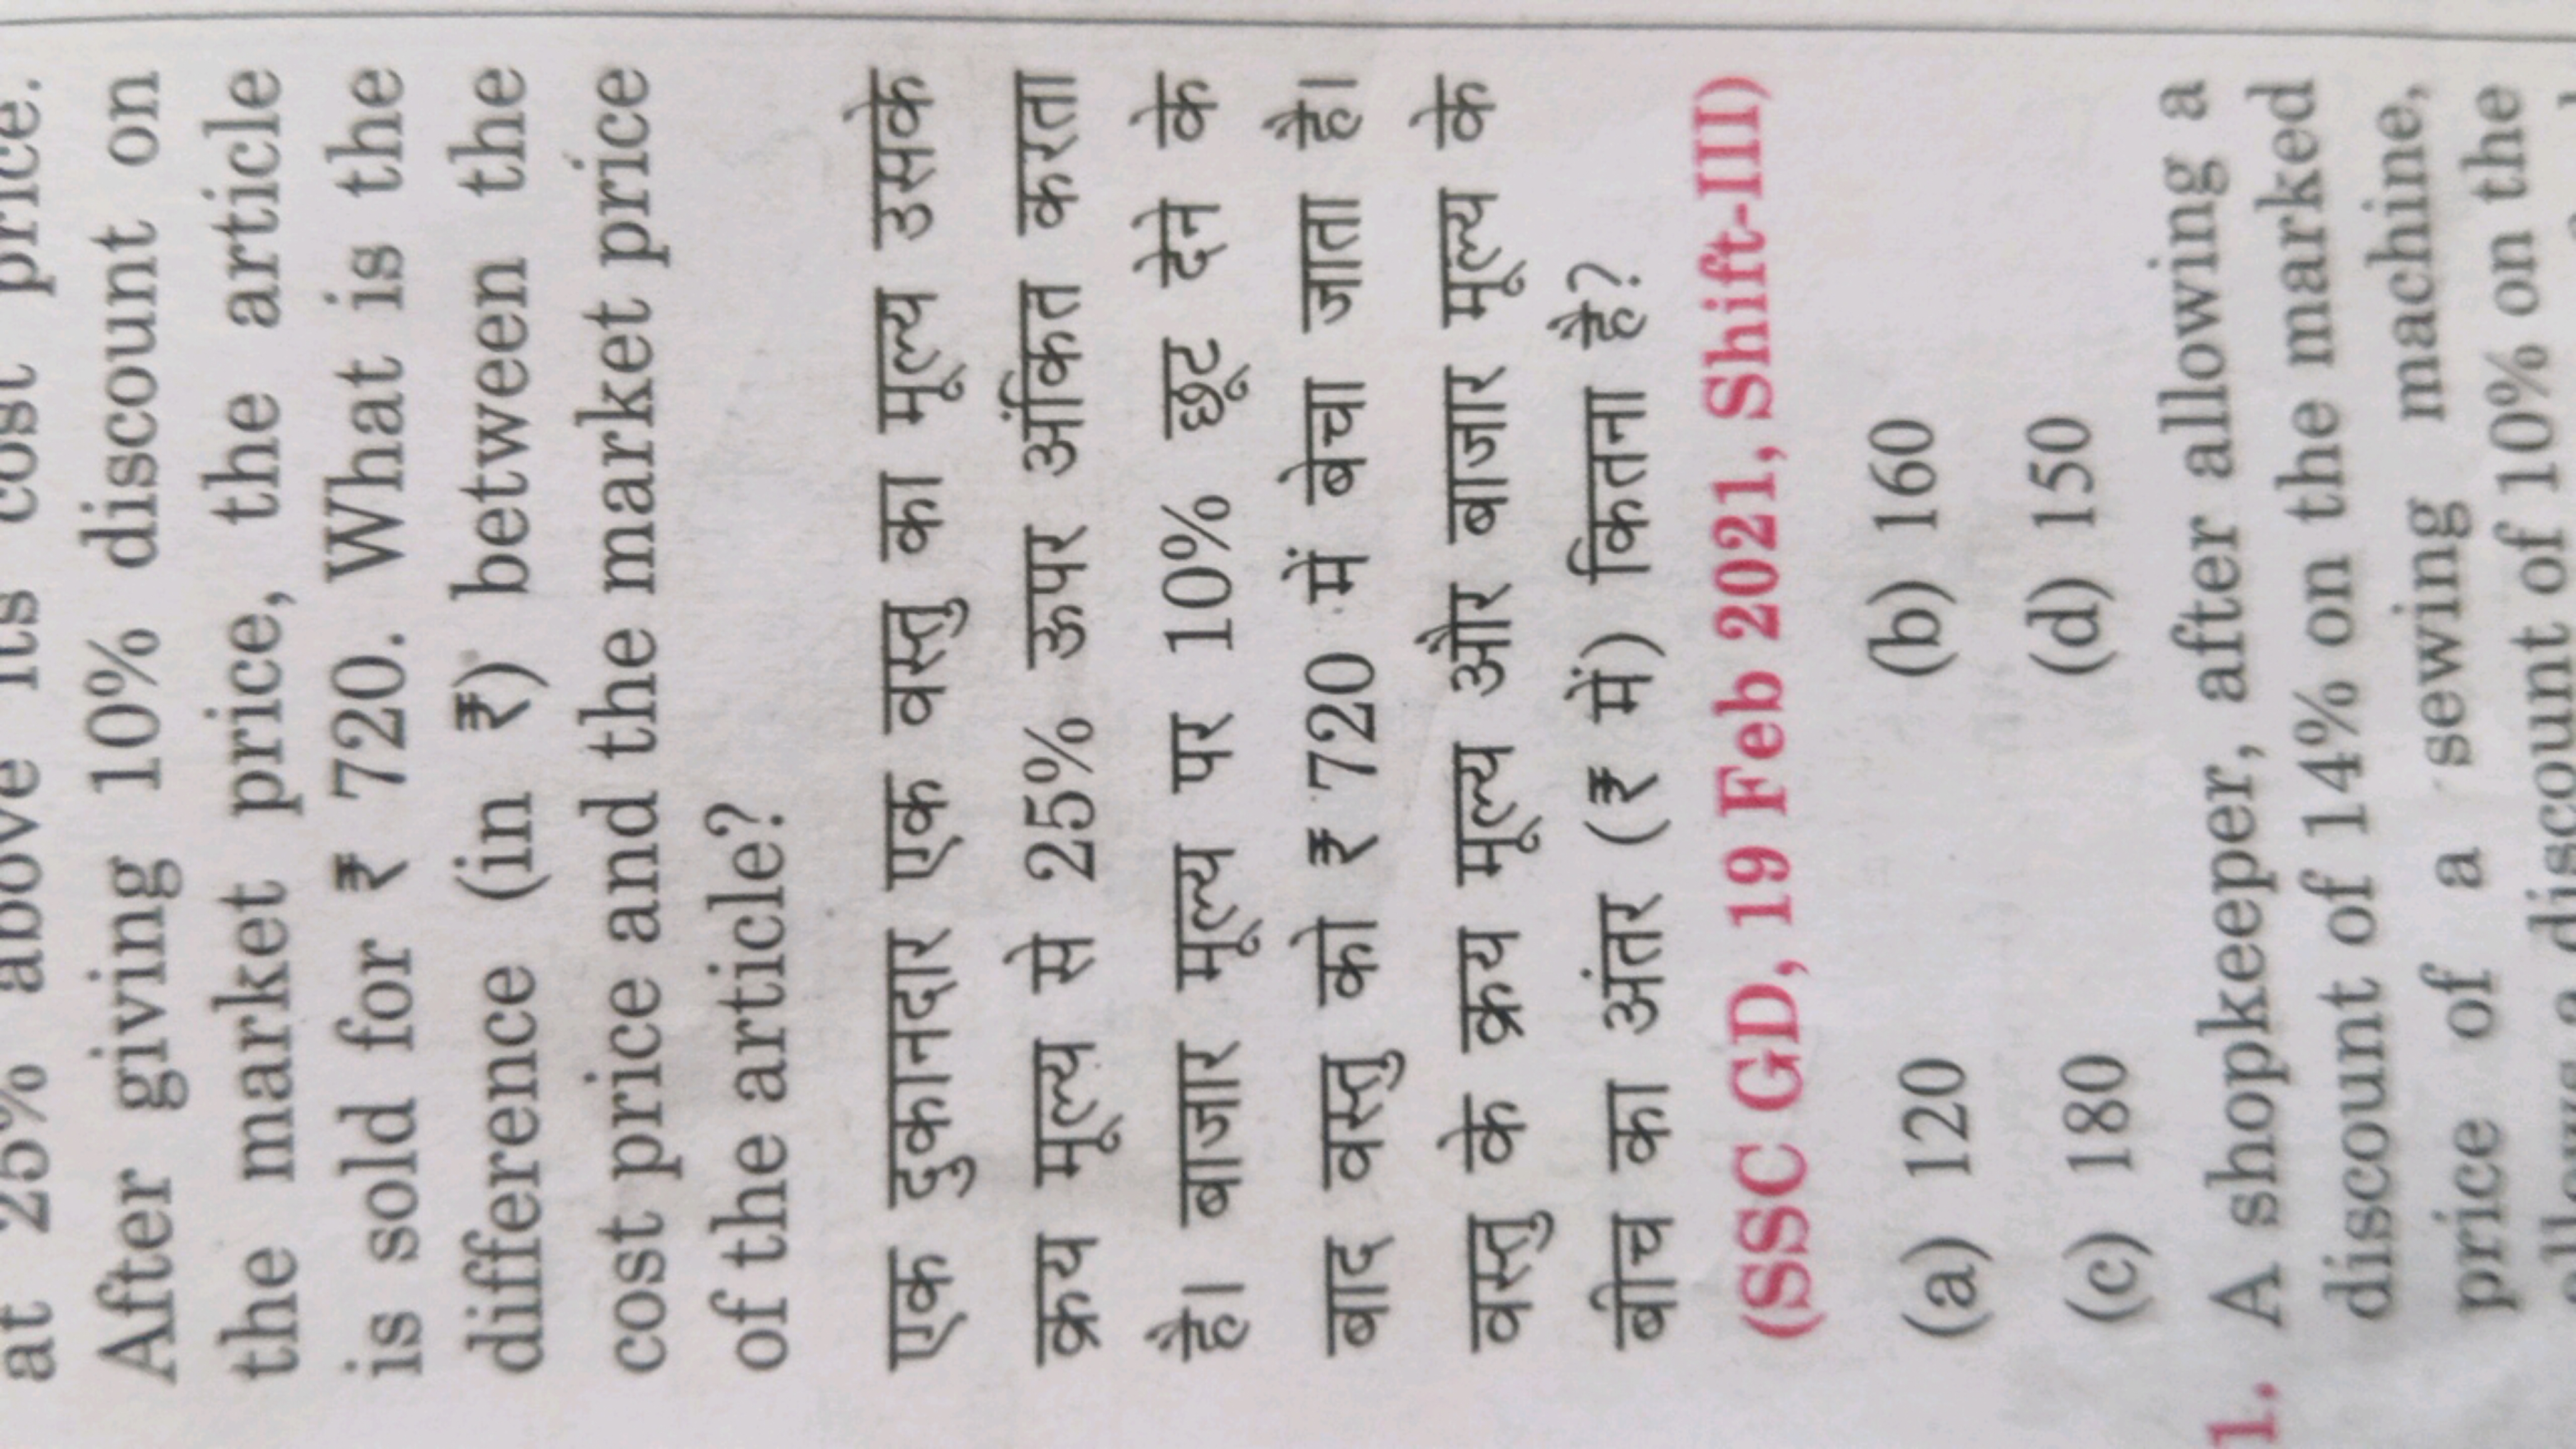 at 25% above its cost price.
After giving 10% discount on
the market price, the article
is sold for ₹ 720. What is the
difference (in ₹) between the
cost price and the market price
of the article?
एक दुकानदार एक वस्तु का मूल्य उसके
क्रय मूल्य से 25% ऊपर अंकित करता
है। बाजार मूल्य पर 10% छूट देने के
बाद वस्तु को ₹ 720 में बेचा जाता है।
वस्तु के क्रय मूल्य और बाजार मूल्य के
बीच का अंतर (₹ में) कितना है?
(SSC GD, 19 Feb 2021, Shift-III)
(a) 120 (b) 160
(c) 180 (d) 150
1. A shopkeeper, after allowing a
discount of 14% on the marked
price of a sewing machine,
a discount of 10% on the